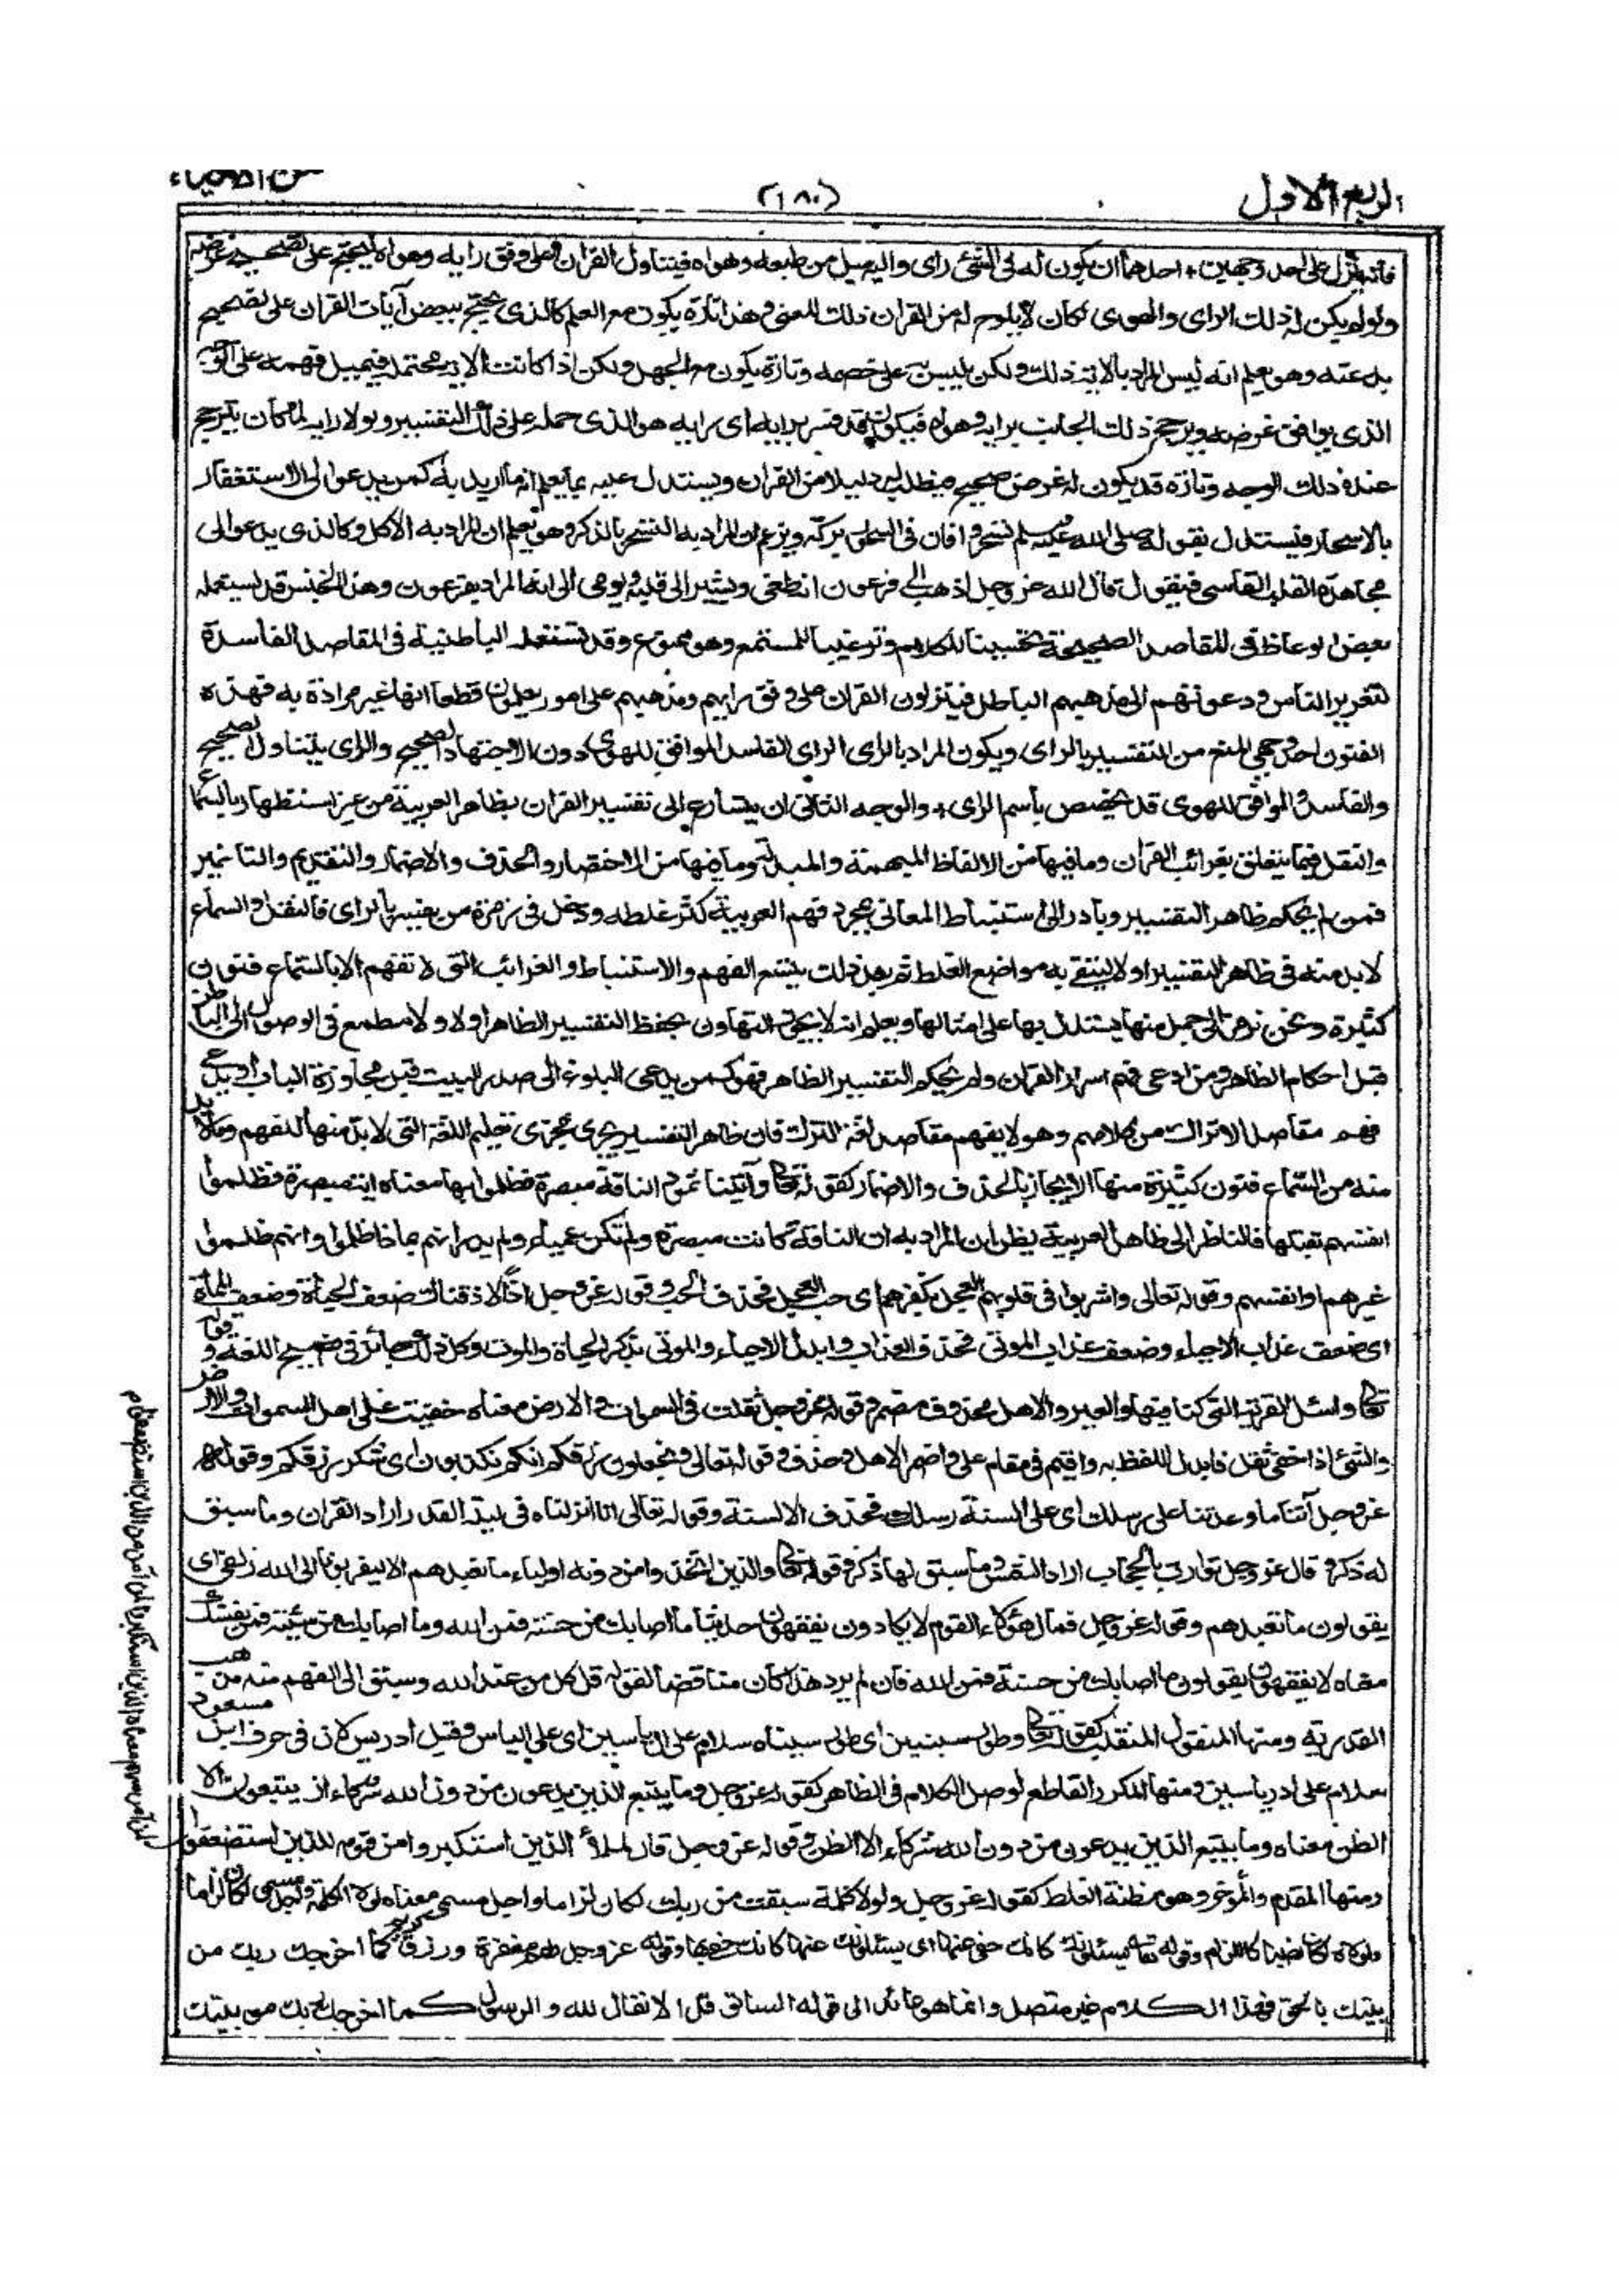 الربع الاول
(١٨٠)
من الاحياء
فانه ينزل على احد وجهين + احدهما ان يكون له فى الشئ راى واليه ميل من طبعه وهواه فيتاول القران على وفق رايه وهواه ليحتج على تصحيح غرضه
ولو لم يكن له ذلك الراى والهوى لكان لا يلوح له من القران ذلك المعنى وهذا تارة يكون مع العلم كالذى يحتج ببعض آيات القران على تصحيح
بدعته وهو يعلم انه ليس المراد بالاية ذلك ولكن يلبس به على خصمه وتارة يكون مع الجهل ولكن اذا كانت الاية محتملة فيميل فهمه على الوجه
الذى يوافق غرضه ويرجح ذلك الجانب برايه وهواه فيكون قد فسر برايه اى رايه هو الذى حمله على ذلك التفسير ولولا رايه لما كان يترجح
عنده ذلك الوجه وتارة قد يكون له غرض صحيح فيطلب له دليلا من القران ويستدل عليه بما يعلم انه ما اريد به كمن يدعو الى الاستغفار
بالاسحار فيستدل بقوله صلى الله عليه وسلم تسحروا فان فى السحور بركة ويزعم ان المراد به التسحر بالذكر وهو يعلم ان المراد به الاكل وكالذى يدعو الى
مجاهدة القلب القاسى فيقول قال الله عز وجل اذهب الى فرعون انه طغى ويشير الى قلبه ويومى الى انه المراد بفرعون وهذا الجنس قد يستعمله
بعض الوعاظ فى المقاصد الصحيحة تحسينا للكلام وترغيبا للمستمع وهو ممنوع وقد تستعمله الباطنية فى المقاصد الفاسدة
لتغرير الناس ودعوتهم الى مذهبهم الباطل فينزلون القران على وفق رايهم ومذهبهم على امور يعلمون قطعا انها غير مرادة به فهذه
الفنون احد وجهى المنع من التفسير بالراى ويكون المراد بالراى الراى الفاسد الموافق للهوى دون الاجتهاد الصحيح والراى يتناول الصحيح
والفاسد والموافق للهوى قد يخصص باسم الراى + والوجه الثانى ان يتسارع الى تفسير القران بظاهر العربية من غير استظهار بالسماع
والنقل فيما يتعلق بغرائب القران وما فيها من الالفاظ المبهمة والمبدلة وما فيها من الاختصار والحذف والاضمار والتقديم والتاخير
فمن لم يحكم ظاهر التفسير وبادر الى استنباط المعانى بمجرد فهم العربية كثر غلطه ودخل فى زمرة من يفسر بالراى فالنقل والسماع
لا بد منه فى ظاهر التفسير اولا ليتقى به مواضع الغلط ثم بعد ذلك يتسع الفهم والاستنباط والغرائب التى لا تفهم الا بالسماع فنون
كثيرة ونحن نرمز الى جمل منها يستدل بها على امثالها ويعلم انه لا يجوز التهاون بحفظ التفسير الظاهر اولا ولا مطمع فى الوصول الى الباطن
قبل احكام الظاهر ومن ادعى فهم اسرار القران ولم يحكم التفسير الظاهر فهو كمن يدعى البلوغ الى صدر البيت قبل مجاوزة الباب او يدعى
فهم مقاصد الاتراك من كلامهم وهو لا يفهم مقاصد لغة الترك فان ظاهر التفسير يجرى مجرى تعليم اللغة التى لا بد منها للفهم وما لا بد
منه من السماع فنون كثيرة منها الايجاز بالحذف والاضمار كقوله تعالى وآتينا ثمود الناقة مبصرة فظلموا بها معناه اية مبصرة فظلموا
انفسهم بقتلها فالناظر الى ظاهر العربية يظن ان المراد به ان الناقة كانت مبصرة ولم تكن عمياء ولم يدر انهم بماذا ظلموا وانهم ظلموا
غيرهم او انفسهم وقوله تعالى واشربوا فى قلوبهم العجل بكفرهم اى حب العجل فحذف الحب وقوله عز وجل اذا لاذقناك ضعف الحياة وضعف الممات
اى ضعف عذاب الاحياء وضعف عذاب الموتى فحذف العذاب وابدل الاحياء والموتى بذكر الحياة والموت وكل ذلك جائز فى فصيح اللغة وقوله
تعالى واسئل القرية التى كنا فيها والعير والاهل محذوف مضمر وقوله عز وجل ثقلت فى السموات والارض معناه خفيت على اهل السموات والارض
والشئ اذا خفى ثقل فابدل اللفظ به واقيم فى مقام على واضمر الاهل وحذف وقوله تعالى وتجعلون رزقكم انكم تكذبون اى شكر رزقكم وقوله
عز وجل آتنا ما وعدتنا على رسلك اى على السنة رسلك فحذف الالسنة وقوله تعالى انا انزلناه فى ليلة القدر اراد القران وما سبق
له ذكر وقال عز وجل توارت بالحجاب اراد الشمس وما سبق لها ذكر وقوله تعالى والذين اتخذوا من دونه اولياء ما نعبدهم الا ليقربونا الى الله زلفى اى
يقولون ما نعبدهم وقوله عز وجل فمال هؤلاء القوم لا يكادون يفقهون حديثا ما اصابك من حسنة فمن الله وما اصابك من سيئة فمن نفسك
معناه لا يفقهون يقولون ما اصابك من حسنة فمن الله فان لم يرد هذا كان مناقضا لقوله قل كل من عند الله وسبق الى الفهم منه مذهب
القدرية ومنها المنقول المنقلب كقوله تعالى وطور سينين اى طور سيناء سلام على ال ياسين اى على الياس وقيل ادريس لان فى حرف ابن مسعود
سلام على ادراسين ومنها المكرر القاطع لوصل الكلام فى الظاهر كقوله عز وجل وما يتبع الذين يدعون من دون الله شركاء ان يتبعون الا
الظن معناه وما يتبع الذين يدعون من دون الله شركاء الا الظن وقوله عز وجل قال الملأ الذين استكبروا من قومه للذين استضعفوا
لمن آمن منهم معناه الذين استكبروا لمن آمن من الذين استضعفوا
ومنها المقدم والمؤخر وهو مظنة الغلط كقوله عز وجل ولولا كلمة سبقت من ربك لكان لزاما واجل مسمى معناه لولا الكلمة واجل مسمى لكان لزاما
ولولاه لكان نصبا كاللزام وقوله تعالى يسئلونك كانك حفى عنها اى يسئلونك عنها كانك حفى بها وقوله عز وجل لهم مغفرة ورزق كريم كما اخرجك ربك من
بيتك بالحق فهذا الكلام غير متصل وانما هو عائد الى قوله السابق قل الانفال لله والرسول كما اخرجك ربك من بيتك